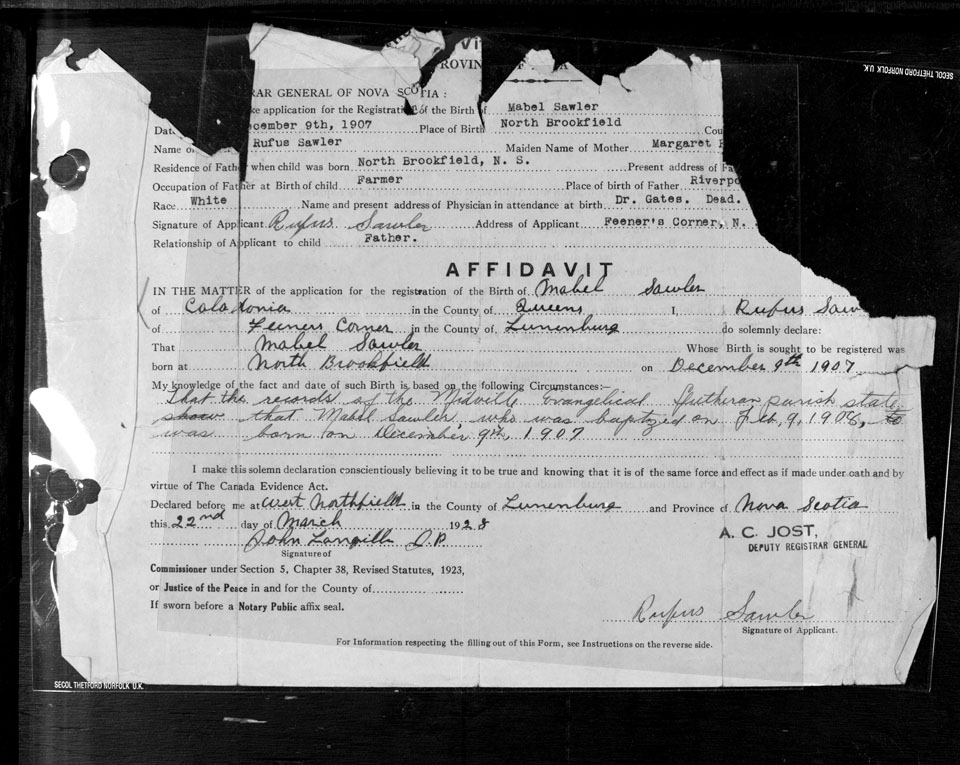 PROVIN
SECOL THETFORD NORFOLK U.K.
RAR GENERAL OF NOVA SCOTIA :
ke application for the Registration of the Birth of Mabel Sawler
Date cember 9th, 1907 Place of Birth North Brookfield Cou
Name o Rufus Sawler Maiden Name of Mother Margaret
Residence of Father when child was born North Brookfield, N. S. Present address of Fa
Occupation of Father at Birth of child Farmer Place of birth of Father Riverpo
Race White Name and present address of Physician in attendance at birth Dr. Gates. Dead.
Signature of Applicant Rufus Sawler Address of Applicant Feener's Corner, N.
Relationship of Applicant to child Father.
AFFIDAVIT
IN THE MATTER of the application for the registration of the Birth of Mabel Sawler
of Caladonia in the County of Queens I, Rufus Saw
of Feeners Corner in the County of Lunenburg do solemnly declare:
That Mabel Sawler Whose Birth is sought to be registered was
born at North Brookfield on December 9th 1907
My knowledge of the fact and date of such Birth is based on the following Circumstances:—
That the records of the Midville Evangelical Lutheran parish state
show that Mabel Sawler, who was baptized on Feb, 9, 1908,
was born on December 9th, 1907
I make this solemn declaration conscientiously believing it to be true and knowing that it is of the same force and effect as if made under oath and by
virtue of The Canada Evidence Act.
Declared before me at West Northfield in the County of Lunenburg and Province of Nova Scotia
this 22nd day of March 1928
A. C. JOST,
DEPUTY REGISTRAR GENERAL
John Langille J.P.
Signature of
Commissioner under Section 5, Chapter 38, Revised Statutes, 1923,
or Justice of the Peace in and for the County of
If sworn before a Notary Public affix seal.
Rufus Sawler
Signature of Applicant.
For Information respecting the filling out of this Form, see Instructions on the reverse side.
SECOL THETFORD NORFOLK U.K.